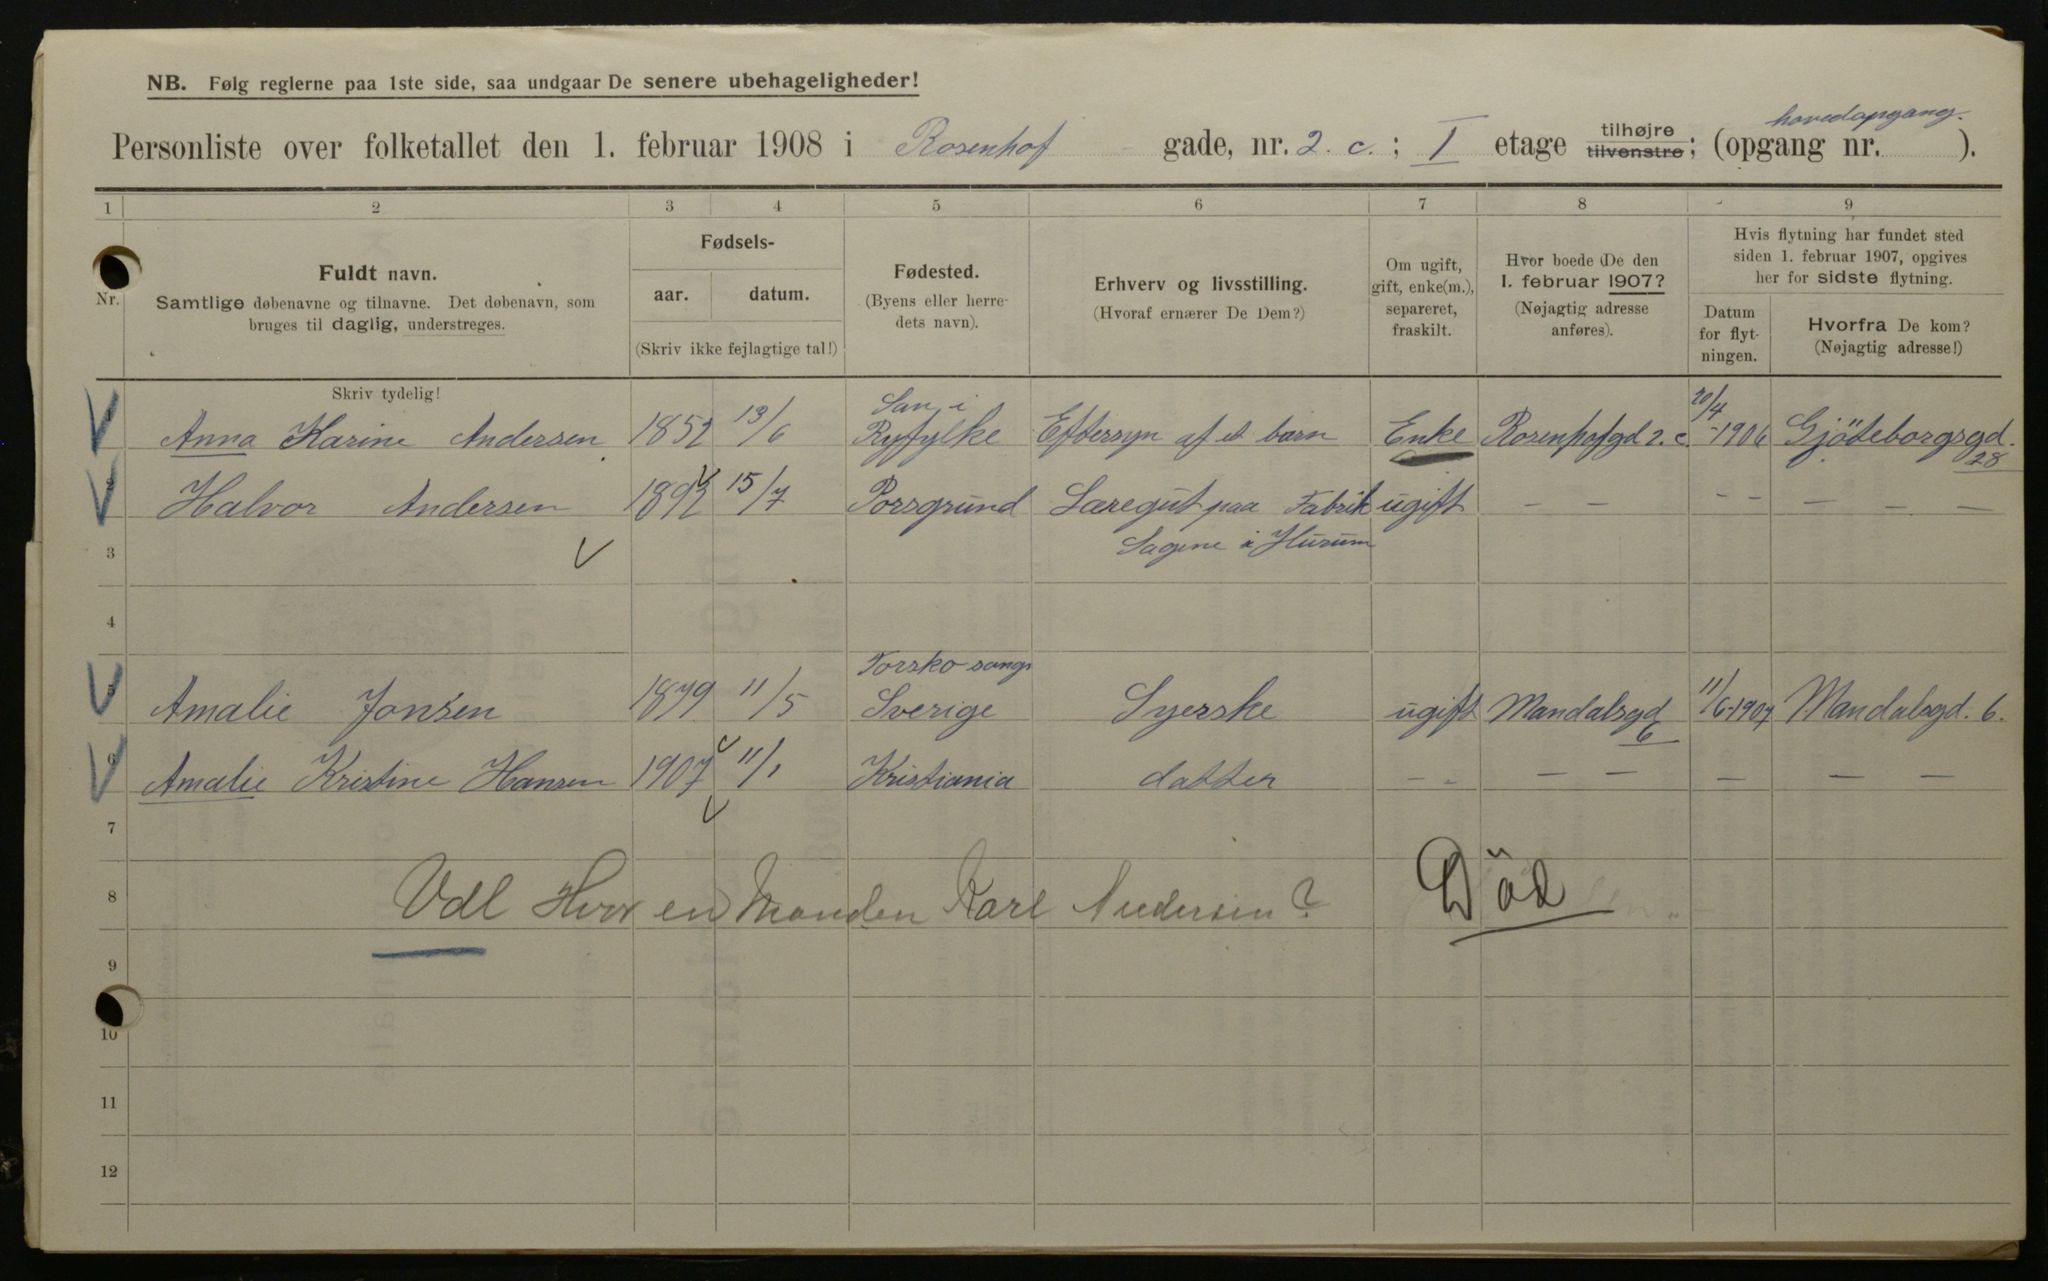 NB. Følg reglerne paa 1ste side, saa undgaar De senere ubehageligheder!
hovedopgang.
Personliste over folketallet den 1. februar 1908 i Rosenhof gade, nr. 2. c. ; I etage tilhøjre tilvenstre; (opgang nr. ).
1 2 3 4 5 6 7 8 9
Nr.
Fuldt navn.
Samtlige døbenavne og tilnavne. Det døbenavn, som
bruges til daglig, understreges.
Skriv tydelig!
Fødsels-
aar. datum.
(Skriv ikke fejlagtige tal!)
Fødested.
(Byens eller herre-
dets navn).
Erhverv og livsstilling.
(Hvoraf ernærer De Dem?)
Om ugift,
gift, enke(m.),
separeret,
fraskilt.
Hvor boede De den
1. februar 1907?
(Nøjagtig adresse
anføres).
Hvis flytning har fundet sted
siden 1. februar 1907, opgives
her for sidste flytning.
Datum
for flyt-
ningen.
Hvorfra De kom?
(Nøjagtig adresse!)
Anna Karine Andersen. 1852 13/6 Ryfylke Eftersyn af et barn Enke Rosenhofgd 2. c. 20/4-1906 Gjöteborgsgd.
28
Halvor Andersen 1892 15/7 Porsgrund Læregut paa Fabrik ugift — — - - — — —
Sagene i Hurum
3
4
Amalie Jonsen 1879 11/5 Sverige Syerske ugift Mandalsgd 6 11/6-1907 Mandalsgd. 6.
6 Amalie Kristine Hansen 1907 11/1 Kristiania datter — - — — — — —
7
8 Udl Hvor en Manden Karl Andersen? Död
9
10
11
12